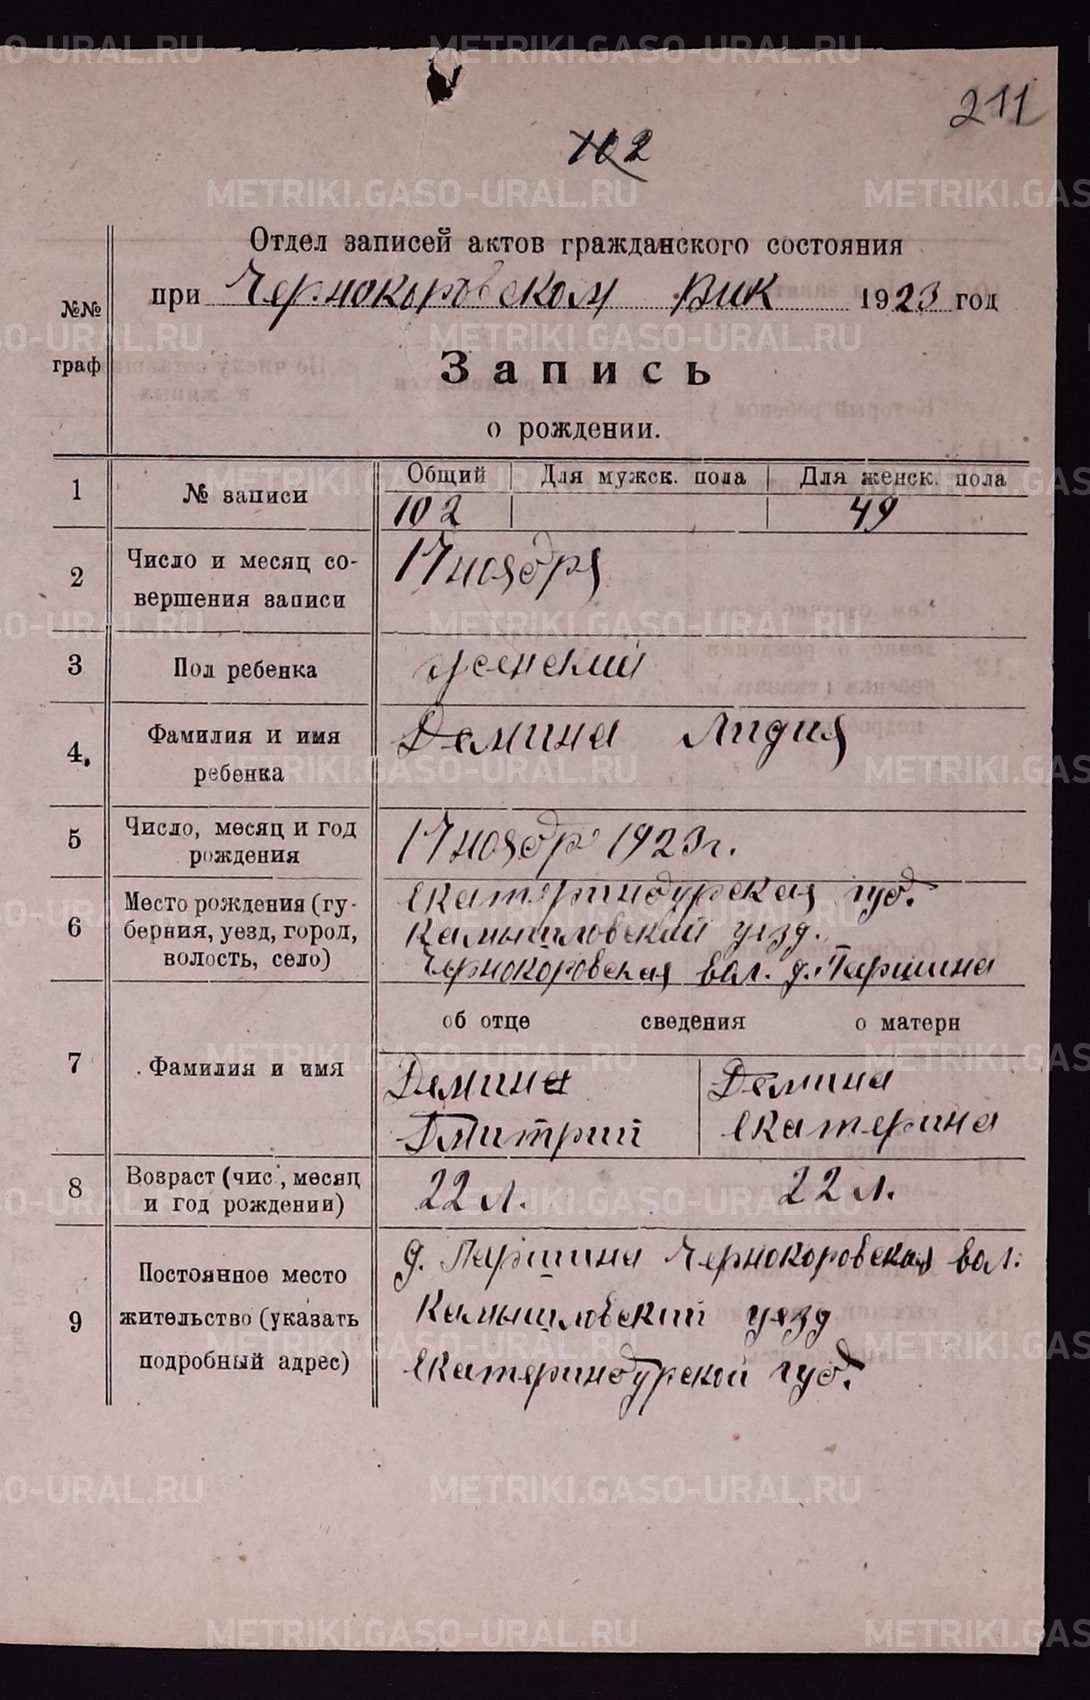 211
102
Отдел записей актов гражданского состояния
при Чернокоровском Вик 1923 год
№№ граф
Запись
о рождении.
1 № записи Общий Для мужск. пола Для женск. пола
102 49
2 Число и месяц со-
вершения записи
17 ноября
3 Пол ребенка женский
4. Фамилия и имя
ребенка
Демина Лидия
5 Число, месяц и год
рождения
17 ноябр 1923 г.
6 Место рождения (гу-
берния, уезд, город,
волость, село)
Екатеринбурская губ.
Камышловский уезд.
Чернокоровская вол. д. Паршина
об отце сведения о матери
7 Фамилия и имя
Демина
Дмитрий
Демина
Екатерина
8 Возраст (чис., месяц
и год рождении)
22 л. 22 л.
9 Постоянное место
жительство (указать
подробный адрес)
д. Паршина Чернокоровская вол.
Камышловский уезд
Екатеринбурской губ.
METRIKI.GASO-URAL.RU